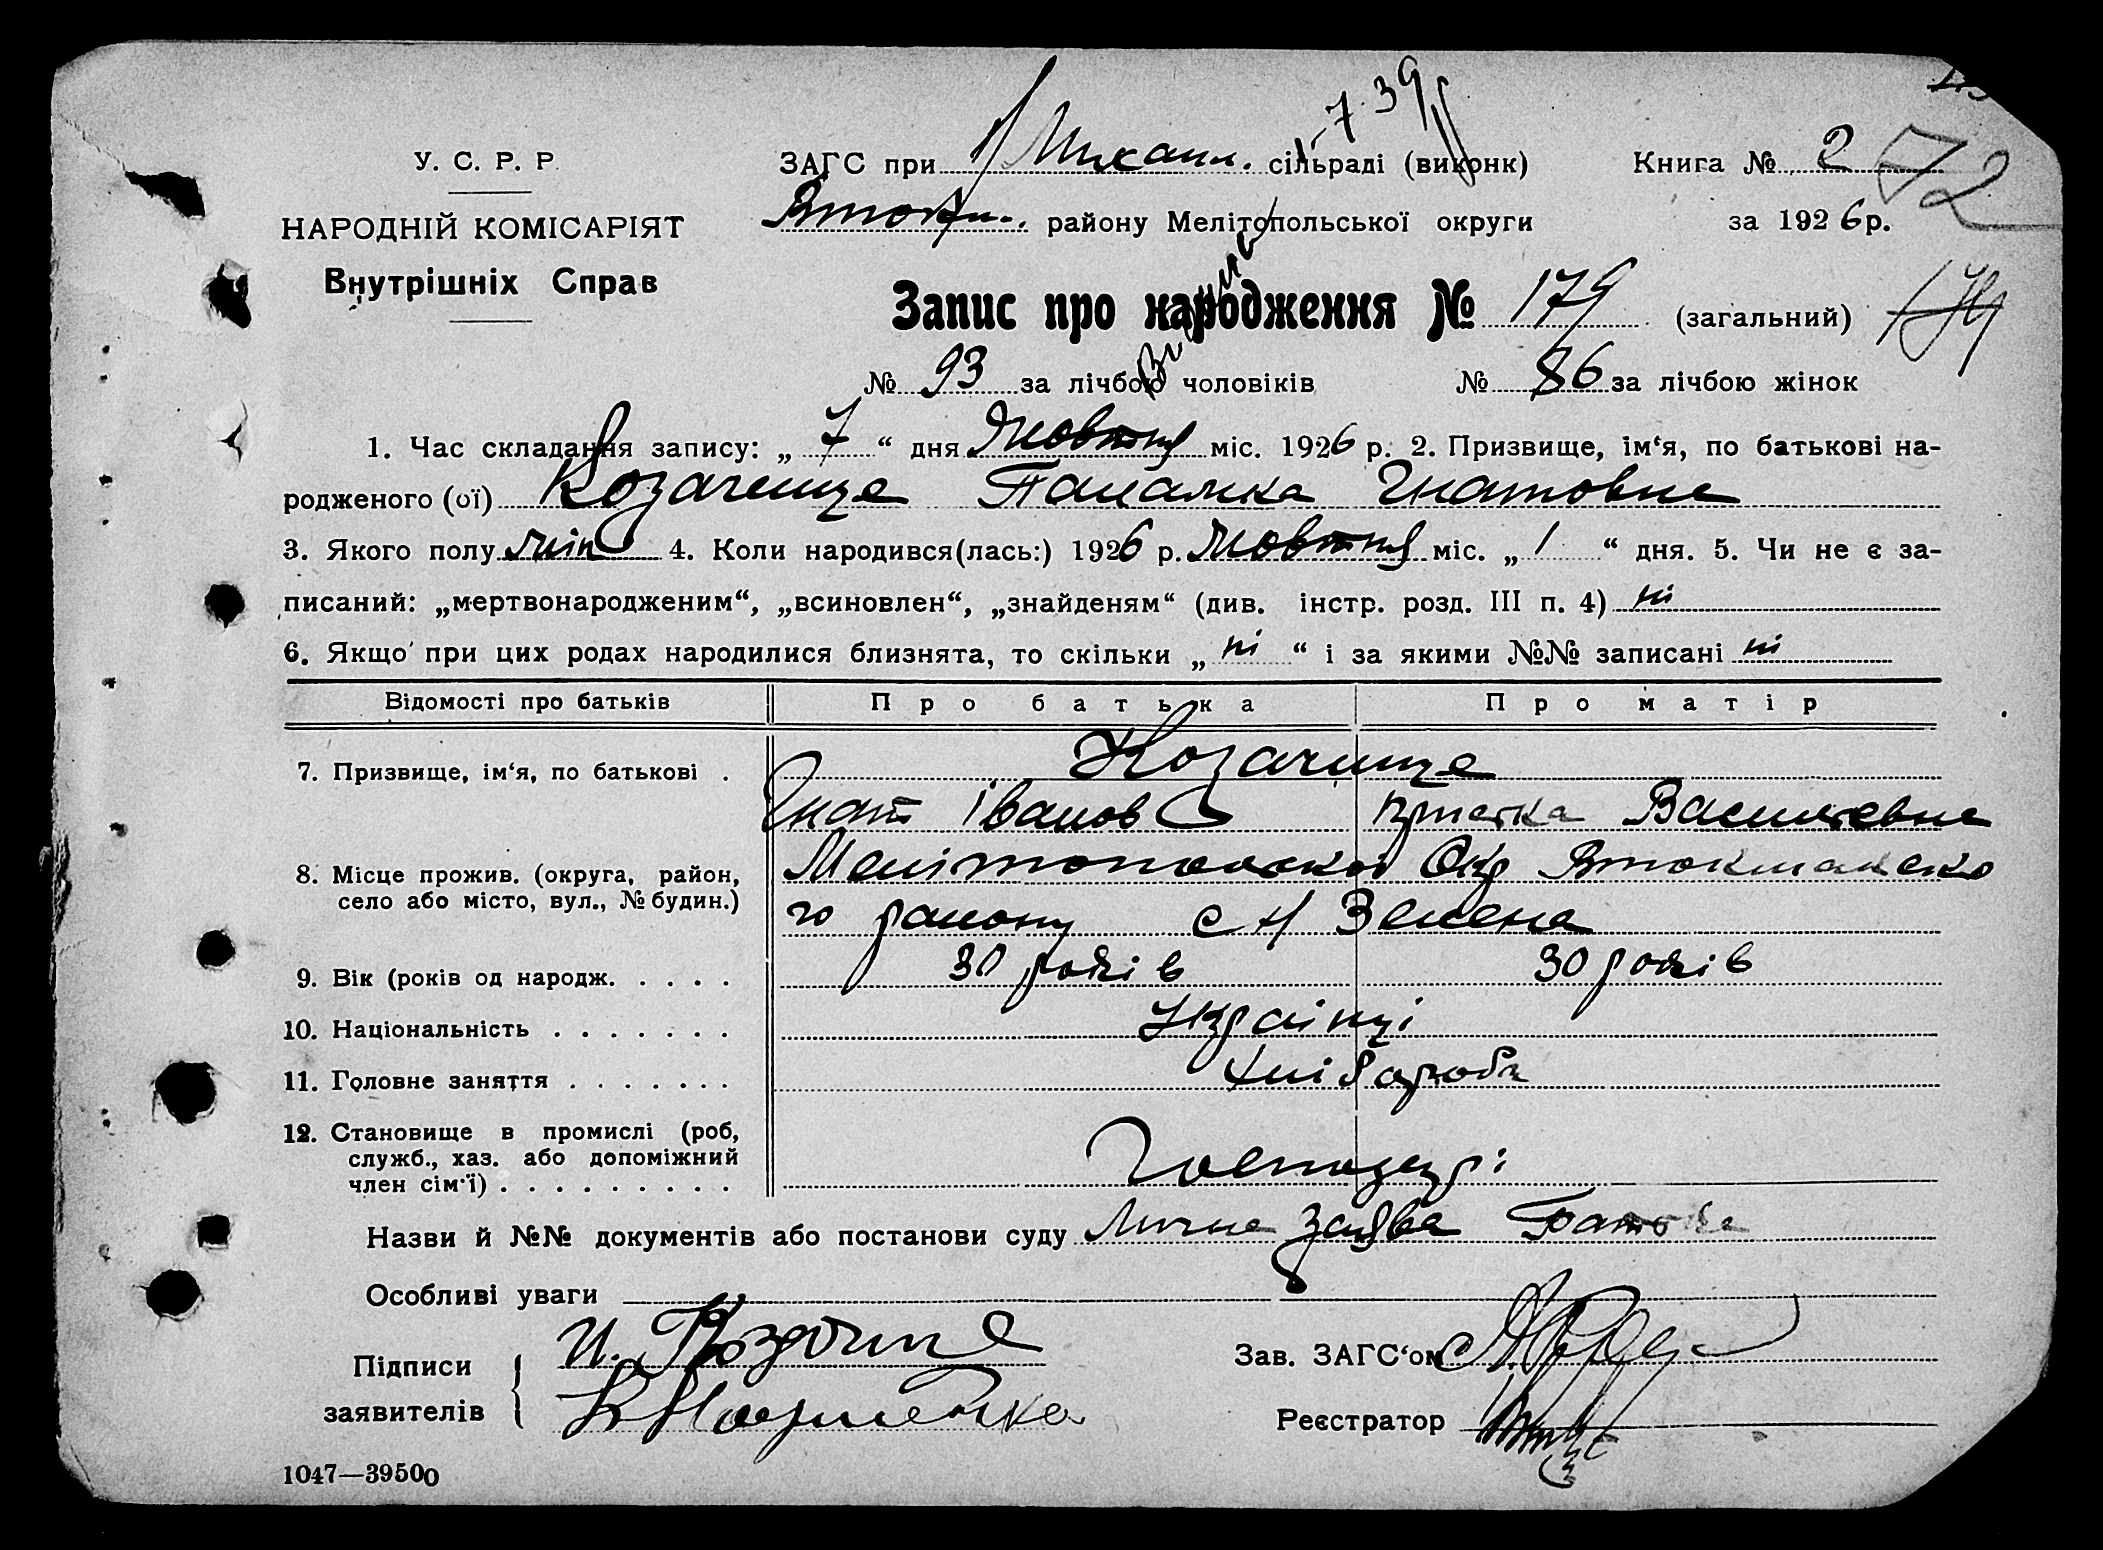 У. С. Р. Р.
НАРОДНІЙ КОМІСАРІЯТ
Внутрішніх Справ
ЗАГС при Михайл. сільраді (виконк)
7.39
Книга № 2
72
Втокм. району Мелітопольської округи
за 1926 р.
Запис про народження № 179 (загальний) 179
№ 93 за лічбою чоловіків № 86 за лічбою жінок
1. Час складання запису: „ 7 “ дня Жовтня міс. 1926 р. 2. Призвище, ім‘я, по батькові на-
родженого (ої) Козачище Гнатовне
3. Якого полу жін 4. Коли народився(лась:) 1926 р. Жовтня міс. „ 1 “ дня. 5. Чи не є за-
писаний: „мертвонародженим“, „всиновлен“, „знайденям“ (див. інстр. розд. III п. 4) ні
6. Якщо при цих родах народилися близнята, то скільки „ ні “ і за якими №№ записані ні
Відомості про батьків Про батька Про матір
7. Призвище, ім‘я, по батькові . Козачище
Гнат Іванов Василевне
8. Місце прожив. (округа, район, село або місто, вул., № будин.) Мелітопольской Окр Втокмакско
го району с Н Зелена
9. Вік (років од народж. . . . . 30 років 30 років
10. Національність . . . . . . . Українці
11. Головне заняття . . . . . . . Хліборобы
12. Становище в промислі (роб, служб., хаз. або допоміжний член сім‘ї) . . . . . . . . . Господарі
Назви й №№ документів або постанови суду Лична заява
Особливі уваги
Підписи заявителів
Зав. ЗАГС‘ом
Реєстратор
1047—39500